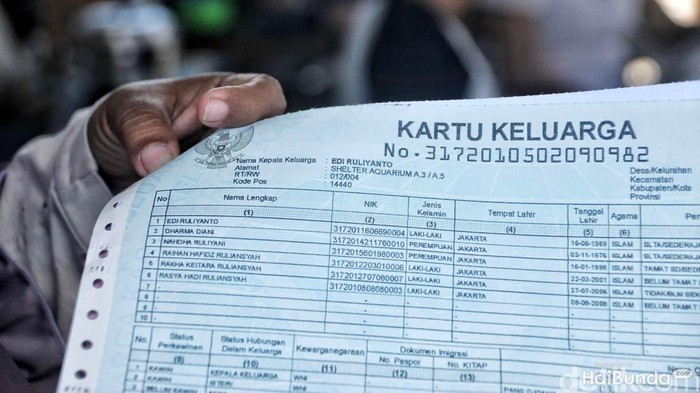 KARTU KELUARGA
No. 3172010502090982
Nama Kepala Keluarga : EDI RULIYANTO
Alamat : SHELTER AQUARIUM A.3 / A.5
RT/RW : 012/004
Kode Pos : 14440
Desa/Kelurahan
Kecamatan
Kabupaten/Kota
Provinsi
No Nama Lengkap NIK Jenis Kelamin Tempat Lahir Tanggal Lahir Agama
(1) (2) (3) (4) (5) (6)
1 EDI RULIYANTO 3172011606690004 LAKI-LAKI JAKARTA 16-06-1969 ISLAM SLTA/SEDERAJA
2 DHARMA DIANI 3172014211760010 PEREMPUAN JAKARTA 02-11-1976 ISLAM SLTA/SEDERAJ
3 NAHDHA RULIYANI 3172015601980003 PEREMPUAN JAKARTA 16-01-1998 ISLAM TAMAT SD/SE
4 RAIHAN HAFIDZ RULIANSYAH 3172012203010006 LAKI-LAKI JAKARTA 22-03-2001 ISLAM BELUM TAMAT
5 RAKHA KEITARA RULIANSYAH 3172012707060007 LAKI-LAKI JAKARTA 27-07-2006 ISLAM TIDAK/BLM SE
6 RASYA HADI RULIANSYAH 3172010808080003 LAKI-LAKI JAKARTA 08-08-2008 ISLAM BELUM TAM
7 - - - - - -
8 - - - - - -
9 - - - - - -
10 - - - - - -
No. Status Perkawinan Status Hubungan Dalam Keluarga Kewarganegaraan Dokumen Imigrasi
No. Paspor No. KITAP
(9) (10) (11) (12) (13)
1 KAWIN KEPALA KELUARGA WNI
2 KAWIN ISTERI WNI
HaiBunda.com